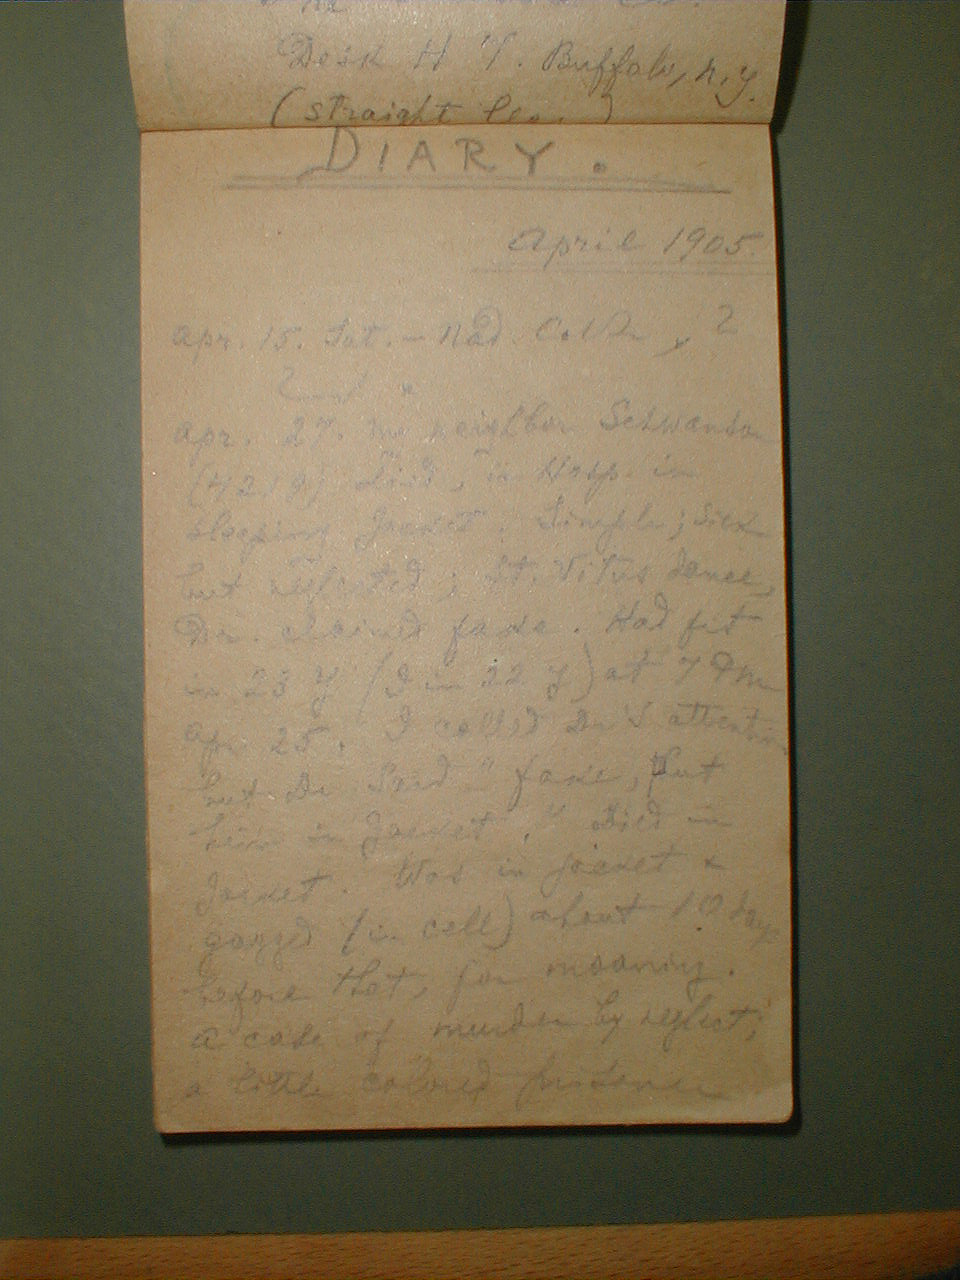 Desk H T. Buffalo, N.Y.
(straight
DIARY.
April 1905.
Apr. 15. Sat. – Had 2
Apr. 27. My neighbor
(4219) died, in Hosp. in
sleeping Jacket. Simple; sick
but neglected; St. Vitus dance,
Dr. claimed fake. Had fit
in 23 y (I in 22 y) at 7 PM
Apr 25. I called Dr's attention
but Dr. said "fake, put
him in Jacket." Died in
Jacket. Was in jacket &
gagged (in cell) about 10 days
before that, for moaning.
A case of murder by neglect;
a little colored prisoner